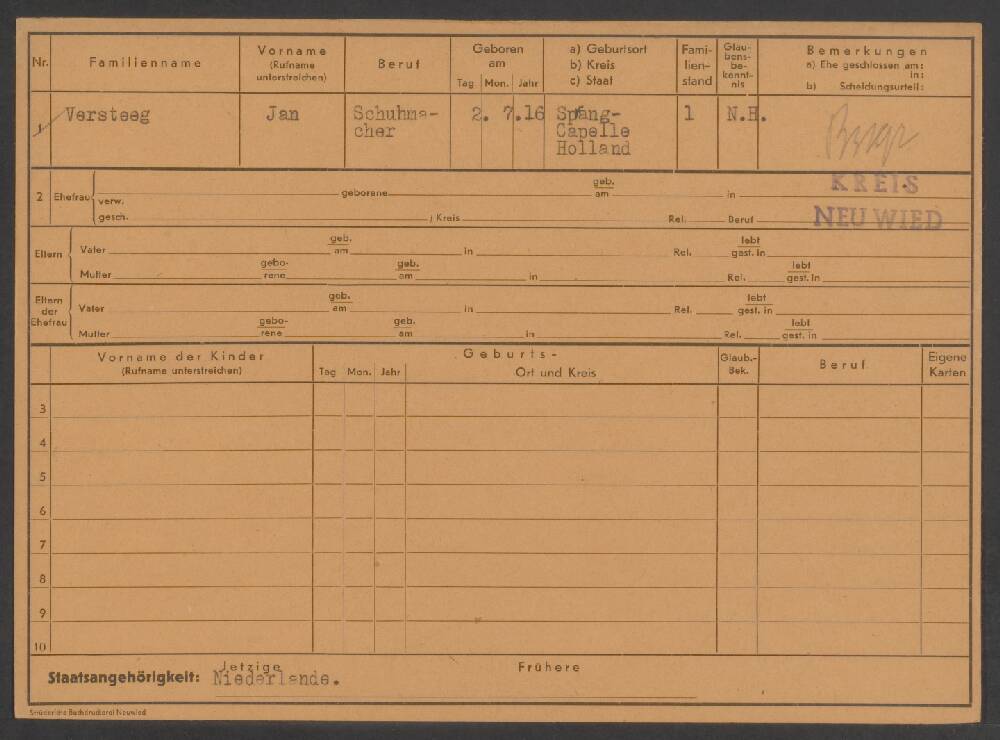 Nr.
Familienname
Vorname
(Rufname
unterstreichen)
Beruf
Geboren
am
Tag Mon. Jahr
a) Geburtsort
b) Kreis
c) Staat
Fami-
lien-
stand
Glau-
bens-
be-
kennt-
nis
Bemerkungen
a) Ehe geschlossen am:
in:
b) Scheidungsurteil:
1 Versteeg Jan Schuhma- 2. 7.16 Spang- 1 N.H.
cher Capelle
Holland
KREIS
NEUWIED
2 Ehefrau geborene geb. am in
verw.
gesch. ; Kreis Rel. Beruf
Eltern
Vater geb. am in Rel. lebt gest. in
Mutter gebo- rene geb. am in Rel. lebt gest. in
Eltern
der
Ehefrau
Vater geb. am in Rel. lebt gest. in
Mutter gebo- rene geb. am in Rel. lebt gest. in
Vorname der Kinder
(Rufname unterstreichen)
Geburts-
Tag Mon. Jahr Ort und Kreis
Glaub.-
Bek.
Beruf
Eigene
Karten
3
4
5
6
7
8
9
10
Staatsangehörigkeit: Jetzige Frühere
Niederlande.
Buchdruckerei Neuwied